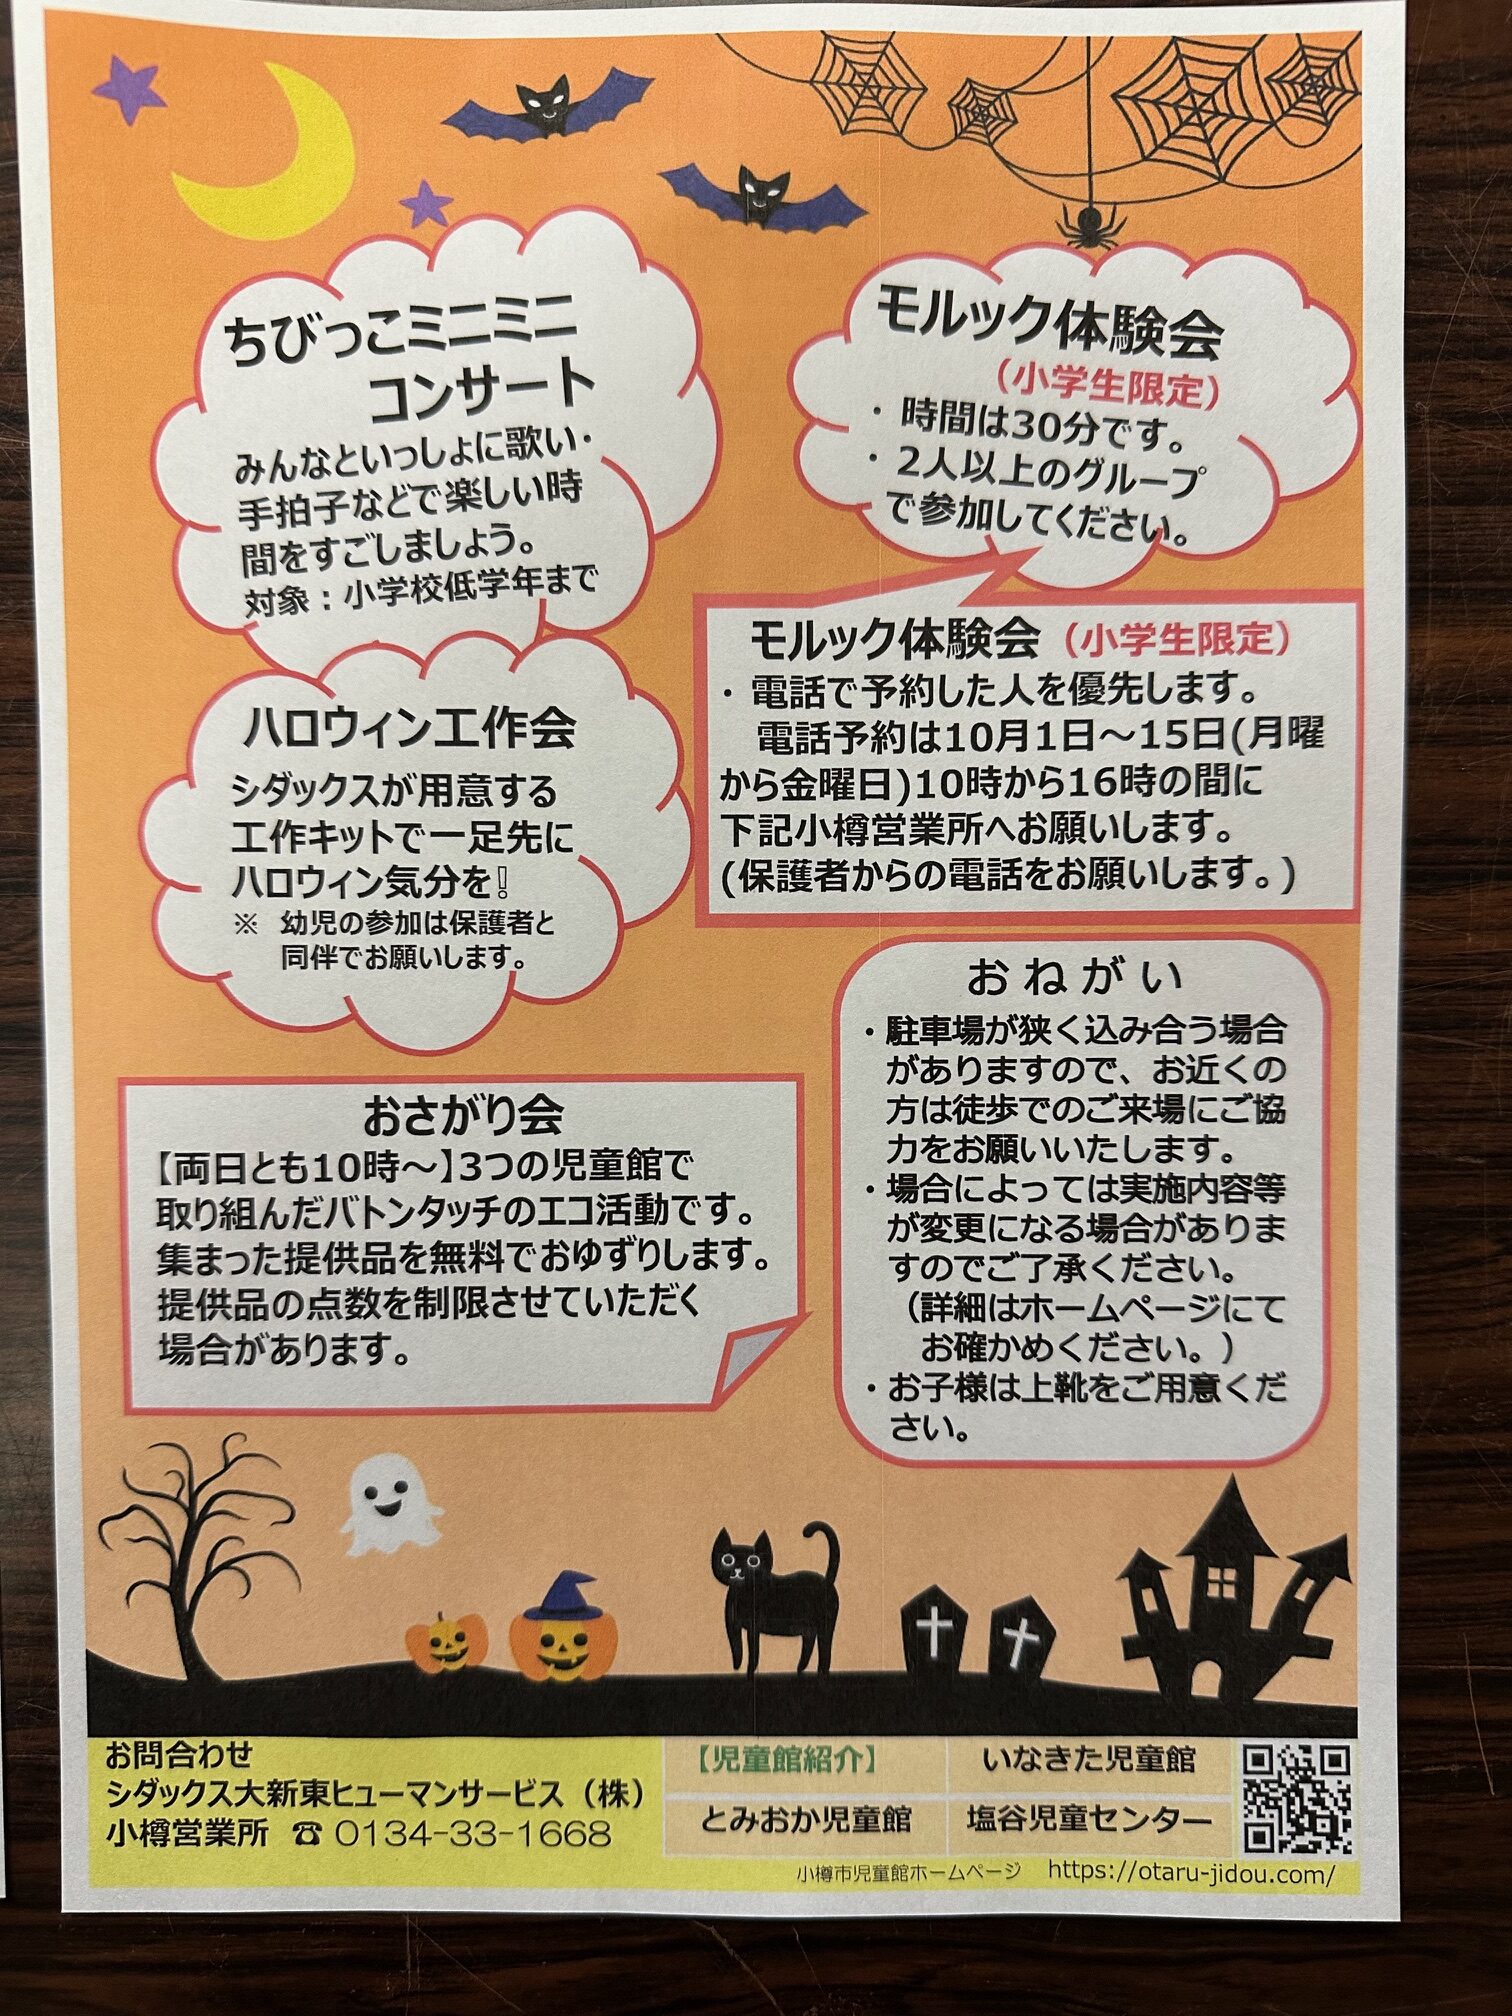 ちびっこミニミニ
コンサート
みんなといっしょに歌い・
手拍子などで楽しい時
間をすごしましょう。
対象：小学校低学年まで
モルック体験会
（小学生限定）
・時間は30分です。
・2人以上のグループ
で参加してください。
モルック体験会（小学生限定）
・電話で予約した人を優先します。
電話予約は10月1日～15日(月曜
から金曜日)10時から16時の間に
下記小樽営業所へお願いします。
(保護者からの電話をお願いします。)
ハロウィン工作会
シダックスが用意する
工作キットで一足先に
ハロウィン気分を!
※ 幼児の参加は保護者と
同伴でお願いします。
おさがり会
【両日とも10時～】3つの児童館で
取り組んだバトンタッチのエコ活動です。
集まった提供品を無料でおゆずりします。
提供品の点数を制限させていただく
場合があります。
おねがい
・駐車場が狭く込み合う場合
がありますので、お近くの
方は徒歩でのご来場にご協
力をお願いいたします。
・場合によっては実施内容等
が変更になる場合がありま
すのでご了承ください。
（詳細はホームページにて
お確かめください。）
・お子様は上靴をご用意くだ
さい。
お問合わせ
シダックス大新東ヒューマンサービス（株）
小樽営業所 ☎ 0134-33-1668
【児童館紹介】 いなきた児童館
とみおか児童館 塩谷児童センター
小樽市児童館ホームページ https://otaru-jidou.com/